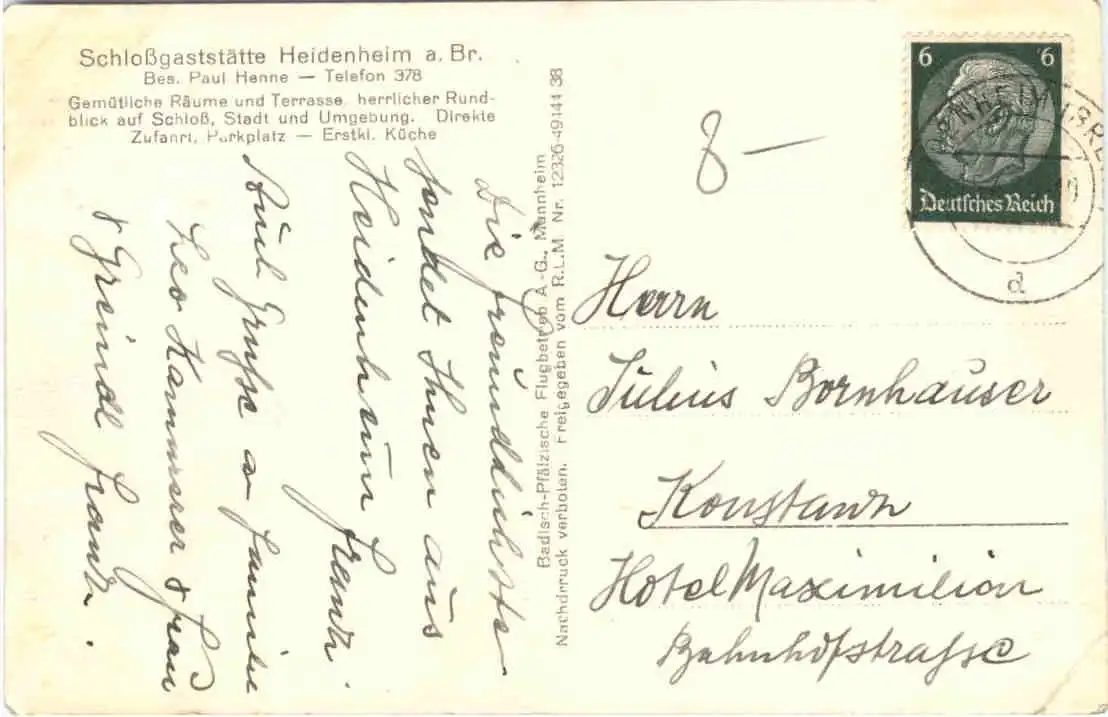 Schloßgaststätte Heidenheim a. Br.
Bes. Paul Henne — Telefon 378
Gemütliche Räume und Terrasse, herrlicher Rund-
blick auf Schloß, Stadt und Umgebung. Direkte
Zufahrt, Parkplatz — Erstkl. Küche
Die freundlichste
sendet Ihnen aus
Heidenheim
Auch Grüsse a Familie
Leo Kammerer & Frau
&
Badisch-Pfälzische Flugbetrieb A.-G., Mannheim
Nachdrruck verboten. Freigegeben vom R.L.M. Nr. 12326-49144 38
8 —
6 6
Deutsches Reich
d
Herrn
Julius Bornhauser
Konstanz
Hotel Maximilian
Bahnhofstrasse